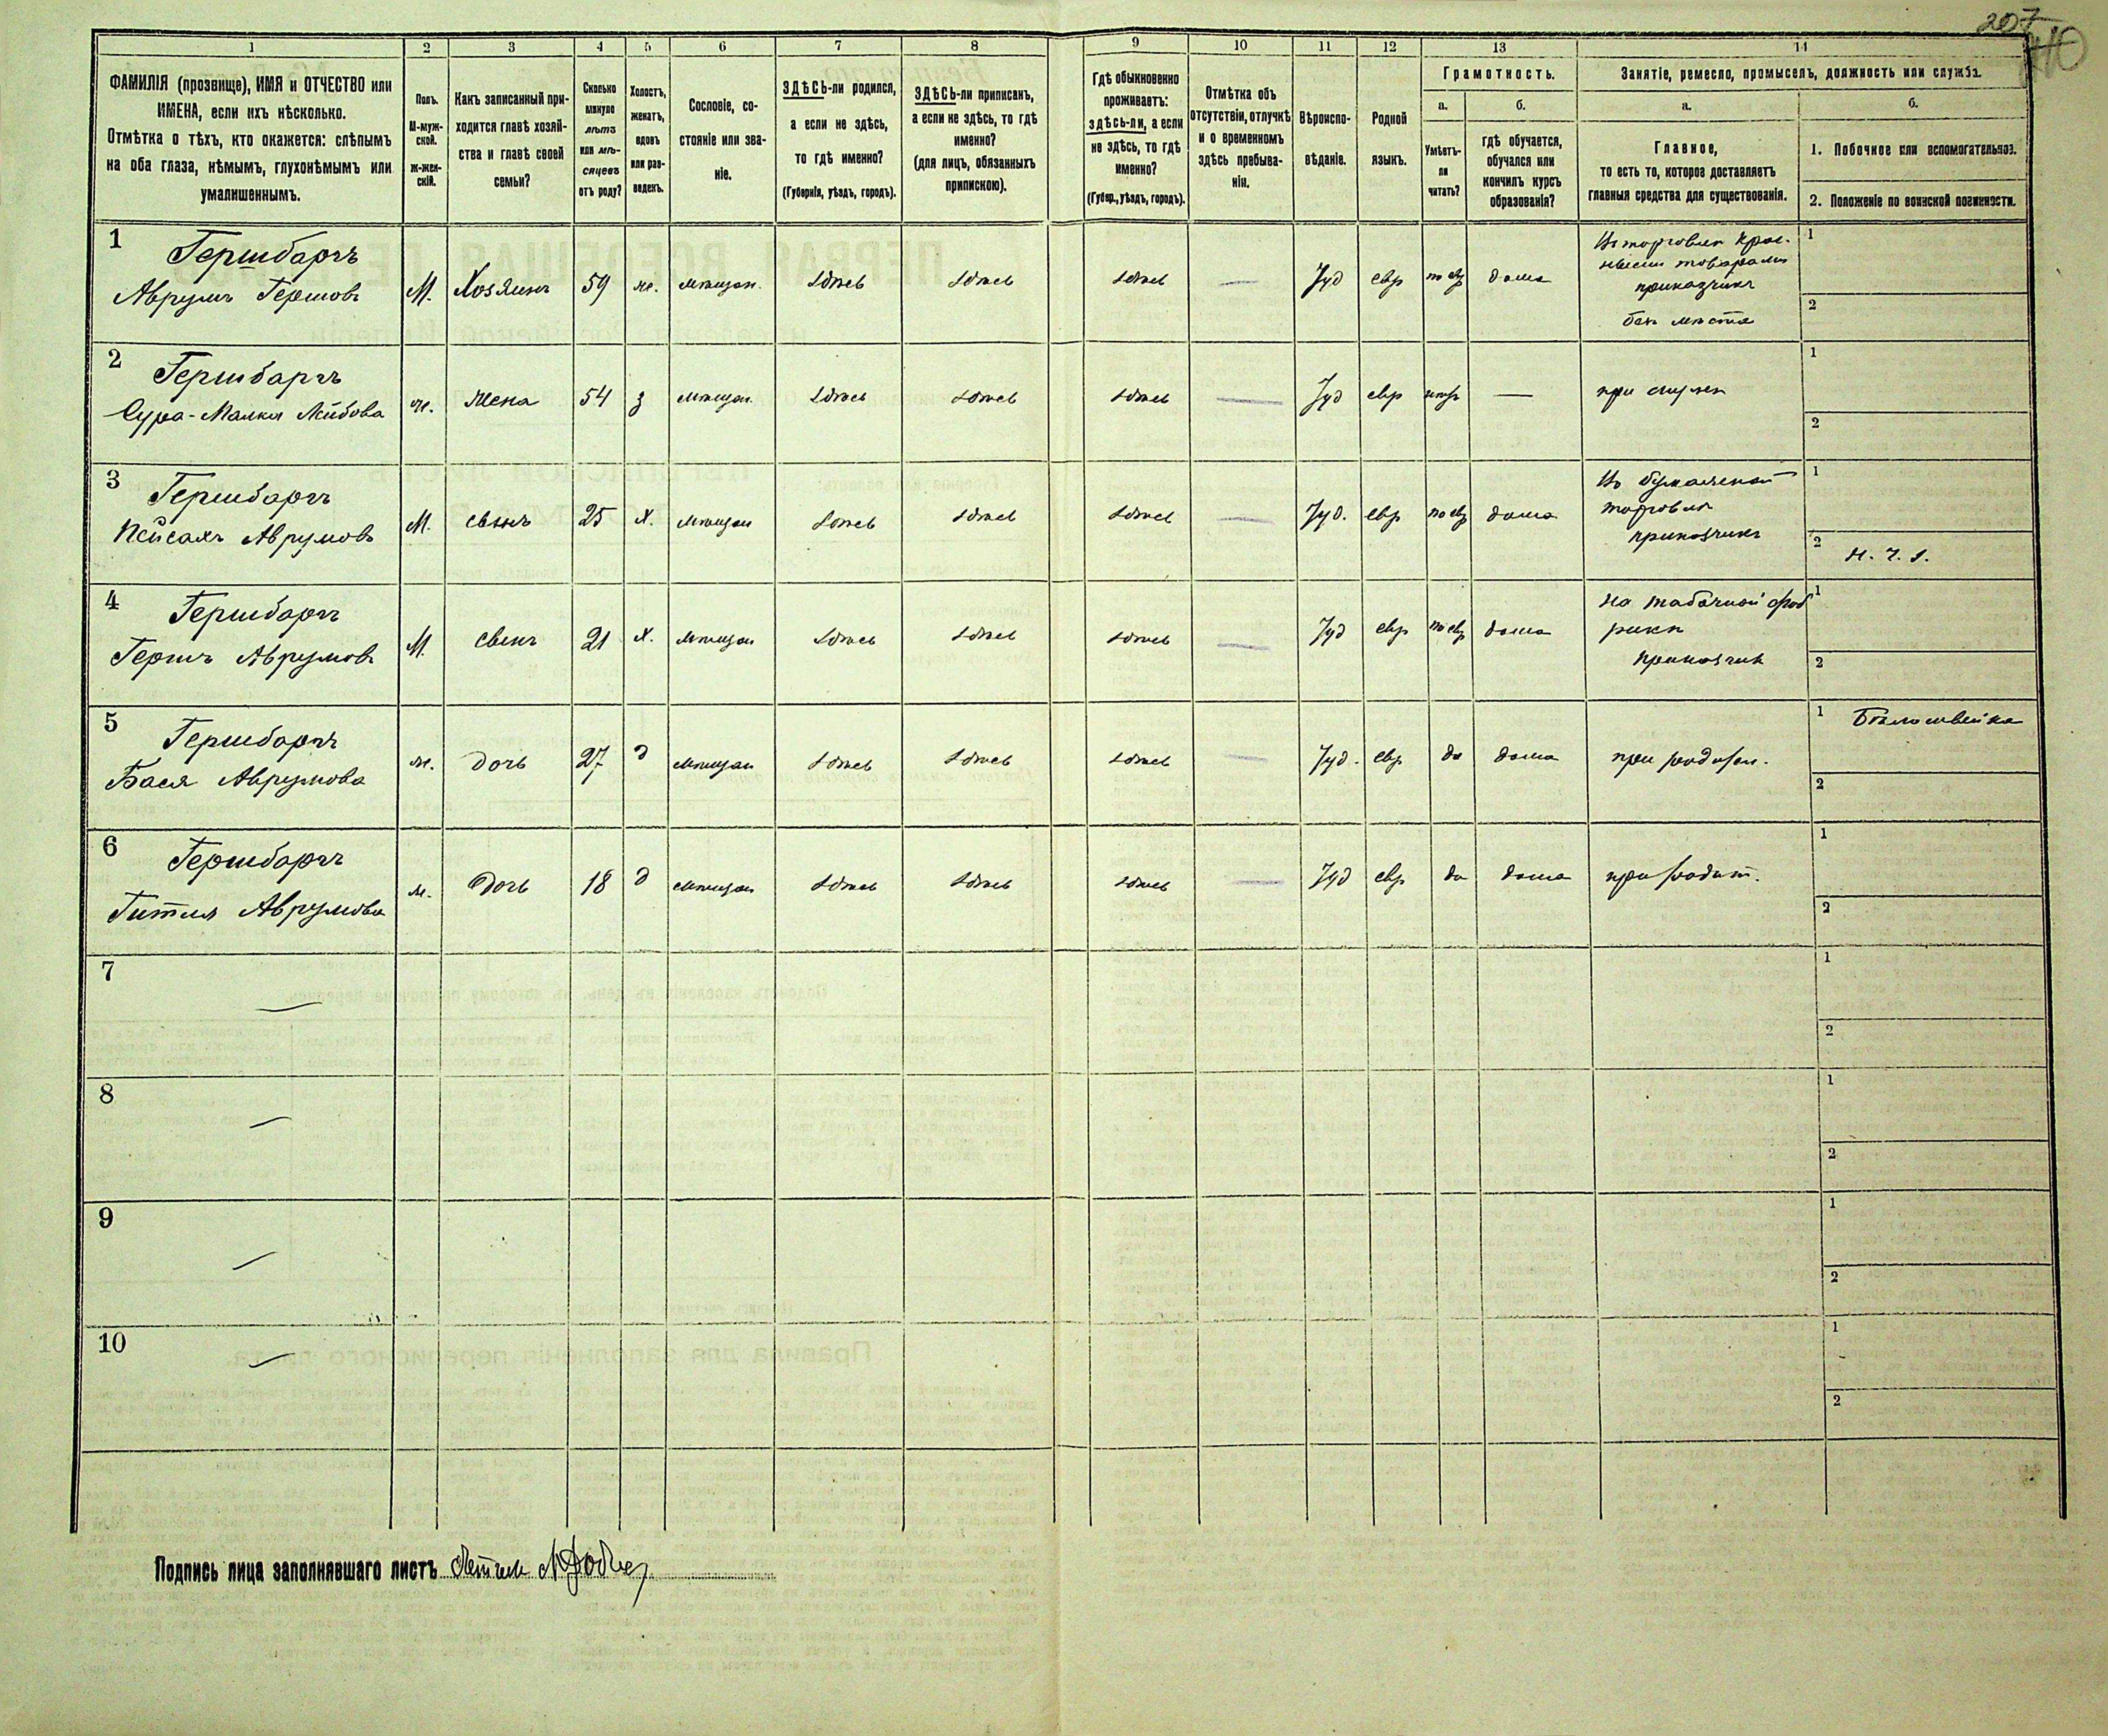 207
1 2 3 4 5 6 7 8 9 10 11 12 13 14
ФАМИЛІЯ (прозвище), ИМЯ и ОТЧЕСТВО или
ИМЕНА, если ихъ нѣсколько.
Отмѣтка о тѣхъ, кто окажется: слѣпымъ
на оба глаза, нѣмымъ, глухонѣмымъ или
умалишеннымъ.
Полъ.
М-муж-
ской.
ж-жен-
скій.
Какъ записанный при-
ходится главѣ хозяй-
ства и главѣ своей
семьи?
Сколько
минуло
лѣтъ
или мѣ-
сяцевъ
отъ роду?
Холостъ,
женатъ,
вдовъ
или раз-
веденъ.
Сословіе, со-
стояніе или зва-
ніе.
ЗДѢСЬ-ли родился,
а если не здѣсь,
то гдѣ именно?
(Губернія, уѣздъ, городъ).
ЗДѢСЬ-ли приписанъ,
а если не здѣсь, то гдѣ
именно?
(для лицъ, обязанныхъ
припискою).
Гдѣ обыкновенно
проживаетъ:
здѣсь-ли, а если
не здѣсь, то гдѣ
именно?
(Губер., уѣздъ, городъ).
Отмѣтка объ
отсутствіи, отлучкѣ
и о временномъ
здѣсь пребыва-
ніи.
Вѣроиспо-
вѣданіе.
Родной
языкъ.
Грамотность.
а.
Умѣетъ-
ли
читать?
б.
гдѣ обучается,
обучался или
кончилъ курсъ
образованія?
Занятіе, ремесло, промыселъ, должность или служба.
а.
Главное,
то есть то, которое доставляетъ
главныя средства для существованія.
б.
1. Побочное или вспомогательное.
2. Положеніе по воинской повинности.
1 Гершбаргъ
Аврумъ Гершовъ М. Хозяинъ 59 ж. мѣщан. здѣсь здѣсь здѣсь — Іуд евр по евр дома
Въ торговлѣ крас-
ными товарами
приказчикъ
безъ мѣста
1
2
2 Гершбаргъ
Сура-Малка Лейбова ж. жена 54 з мѣщан. здѣсь здѣсь здѣсь — Іуд евр нѣтъ — при мужѣ
1
2
3 Гершбаргъ
Пейсахъ Аврумовъ М. сынъ 25 х. мѣщан здѣсь здѣсь здѣсь — Іуд. евр по евр дома
Въ бумажной
торговлѣ
приказчикъ
1
2
4 Гершбаргъ
Гершъ Аврумовъ М. сынъ 21 х. мѣщан здѣсь здѣсь здѣсь — Іуд евр по евр дома
на табачной фаб
рикѣ
приказчик
1
2
5 Гершбаргъ
Бася Аврумова ж. дочь 27 д мѣщан здѣсь здѣсь здѣсь — Іуд. евр да дома при родит.
1 Бѣлошвейка
2
6 Гершбаргъ
Гитля Аврумова ж. дочь 18 д мѣщан здѣсь здѣсь здѣсь — Іуд евр да дома при родит.
1
2
7 —
1
2
8 —
1
2
9 —
1
2
10 —
1
2
Подпись лица заполнявшаго листъ